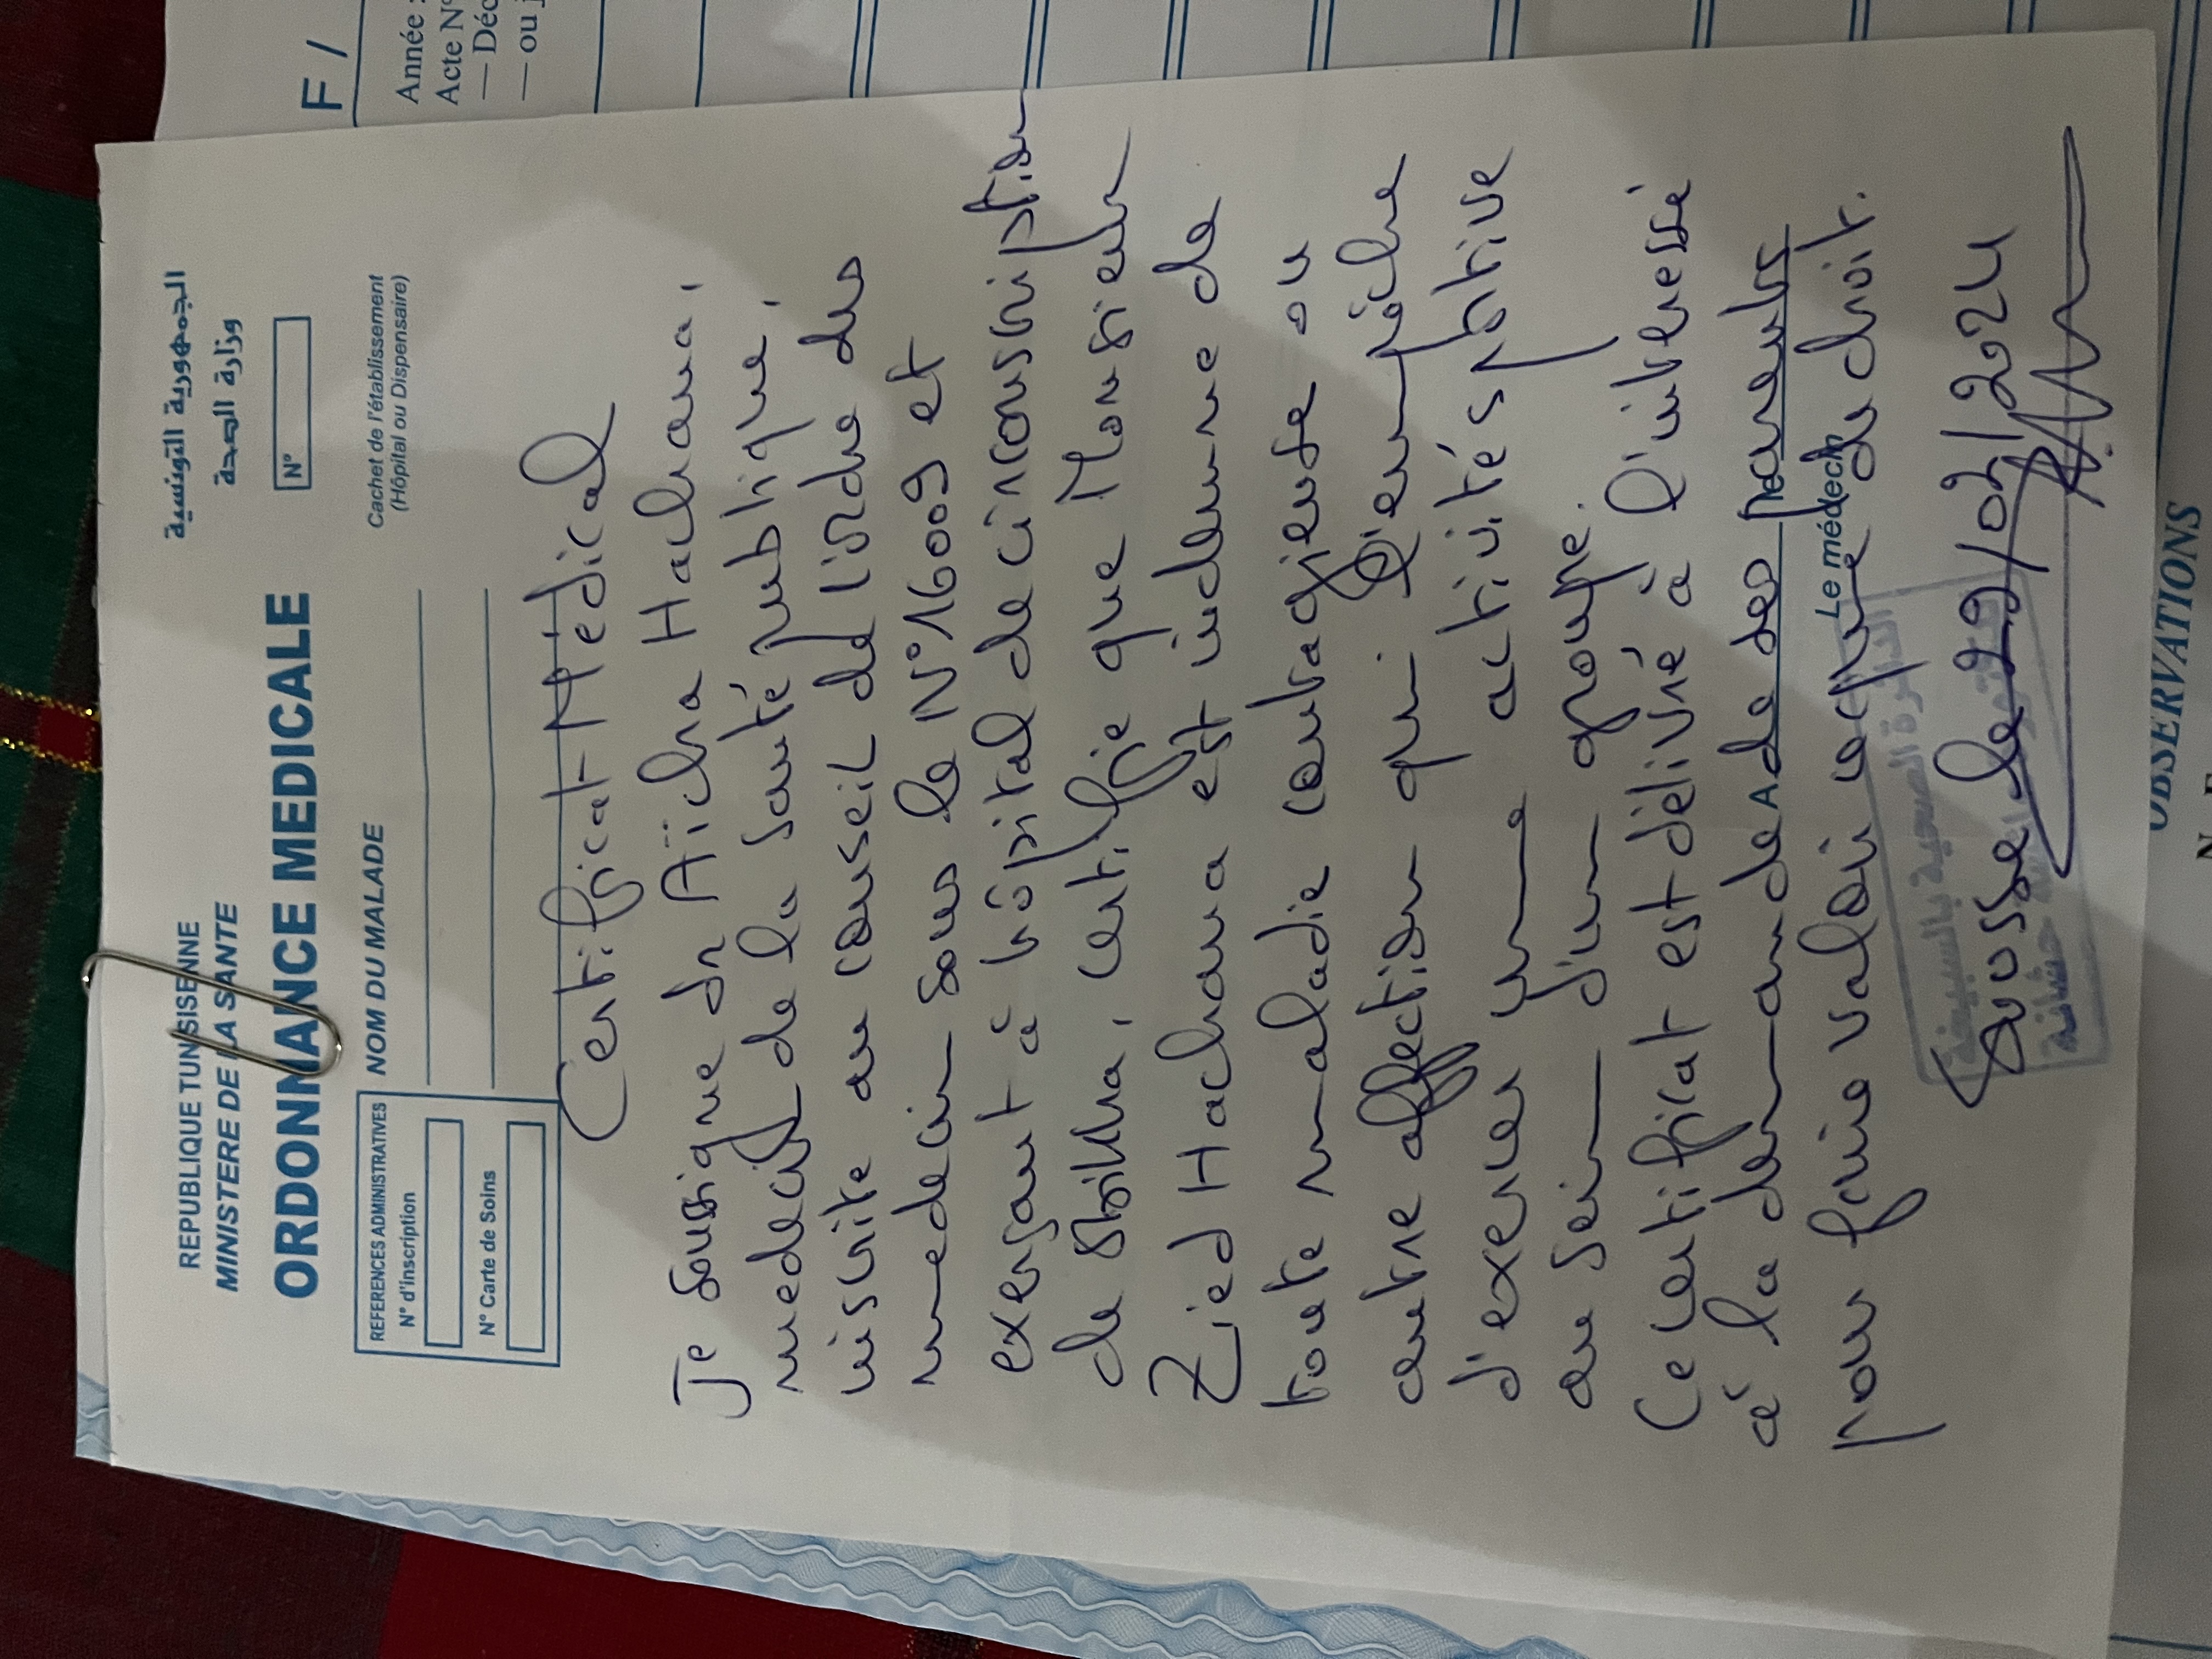 REPUBLIQUE TUNISIENNE
MINISTERE DE LA SANTE
ORDONNANCE MEDICALE
الجمهورية التونسية
وزارة الصحة
N°
REFERENCES ADMINISTRATIVES
N° d'inscription
N° Carte de Soins
NOM DU MALADE
Cachet de l'établissement
(Hôpital ou Dispensaire)
Certificat Médical
Je soussigne dr Aïcha Hachana,
medecin de la santé publique,
inscrite au conseil de l'ordre des
medecin sous le N°16009 et
exerçant à hôpital de circonscription
de, certifie que Monsieur
Zied Hachana est indemne de
toute maladie contagieuse ou
autre affection qui l'empêche
d'exercer une activité sportive
au sein d'un groupe.
Ce certificat est délivré à l'interessé
à la demande de ses parents
pour faire valoir ce que de droit.
Le médecin
Sousse le 29/02/2024
F /
Année :
Acte N°
— Déc
— ou j
OBSERVATIONS